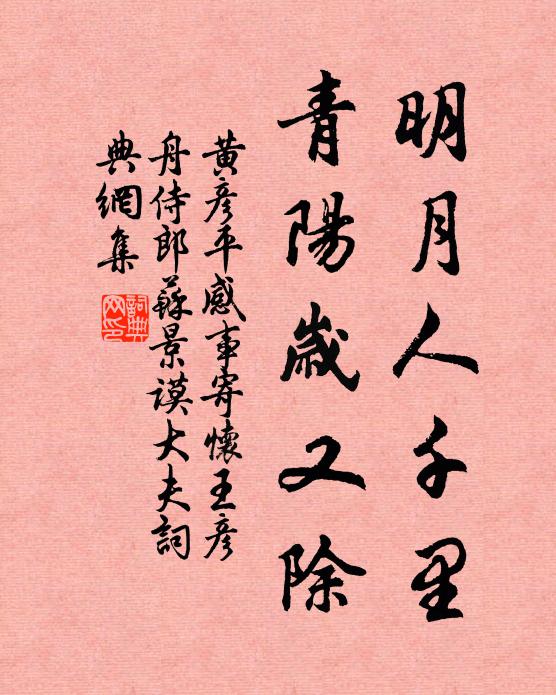 明月人千里
青陽歲又除
黃彥平感事寄懷王彥
舟侍郎蘇景謨大夫詞
典網集
詞典網印